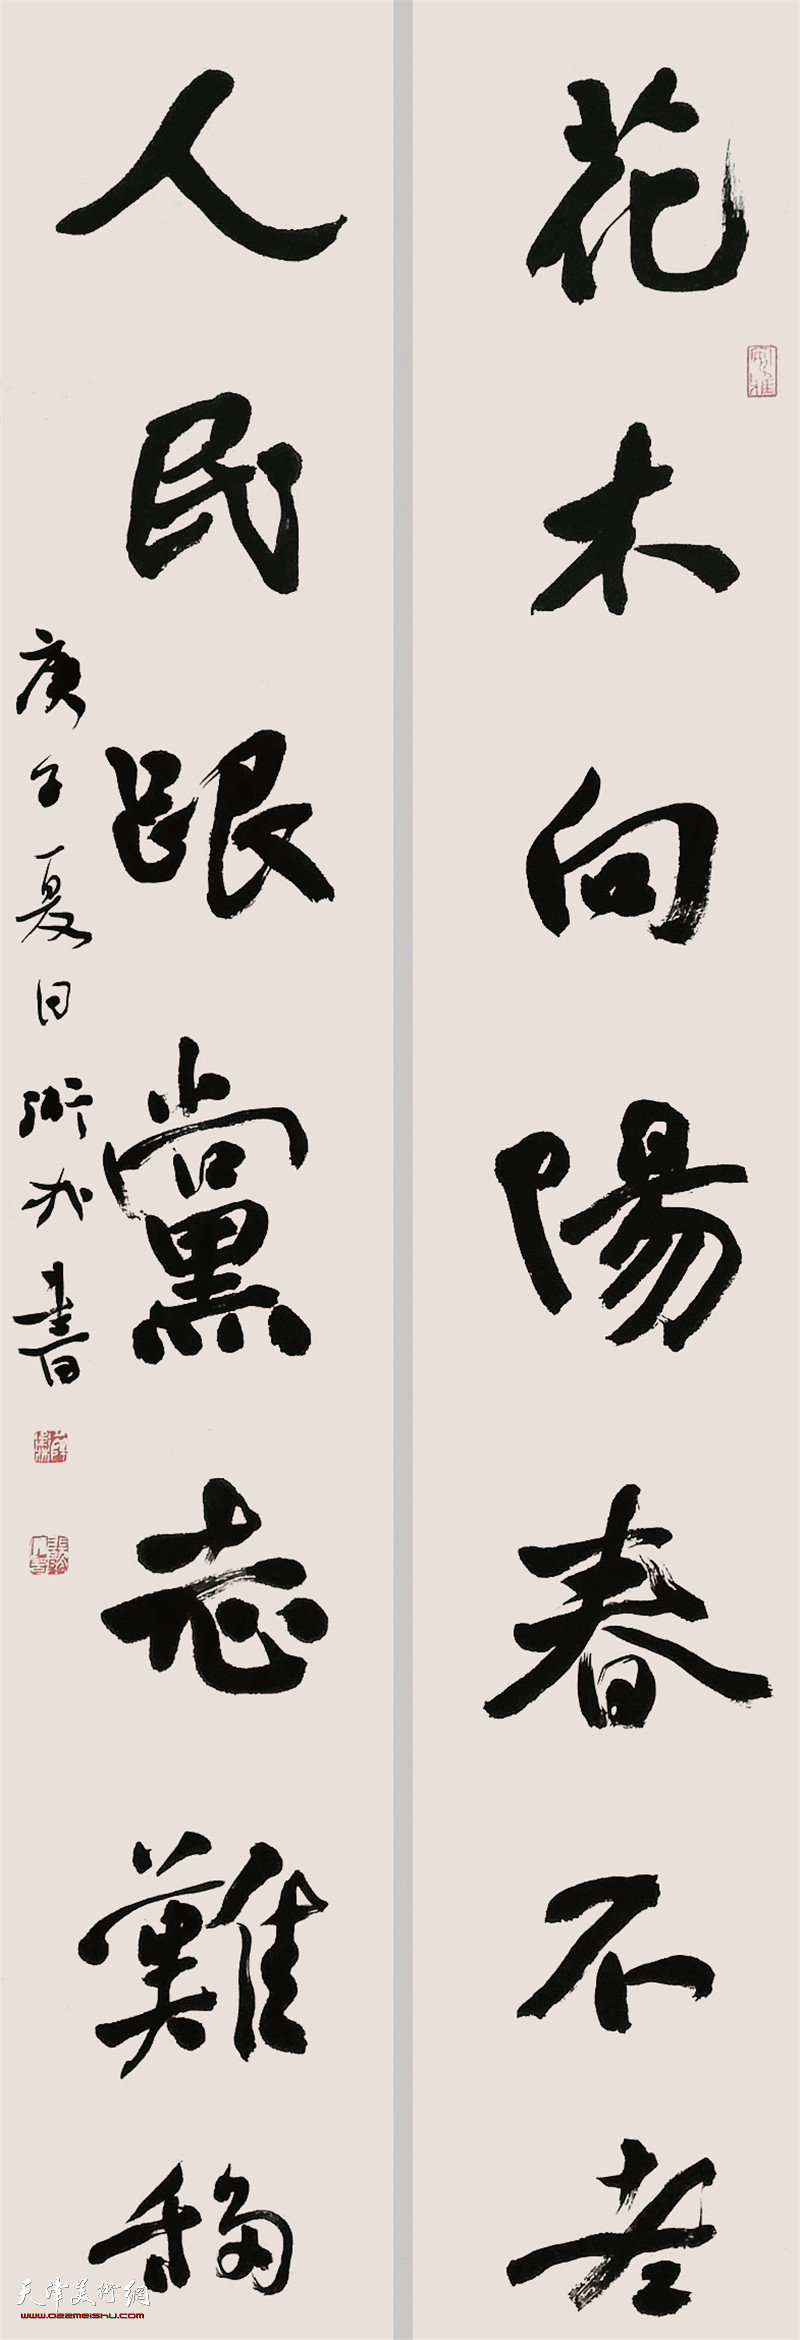 花木向陽春不老
人民跟黨志難移
庚子夏日衛兵書
天津美術網
www.022meishu.com